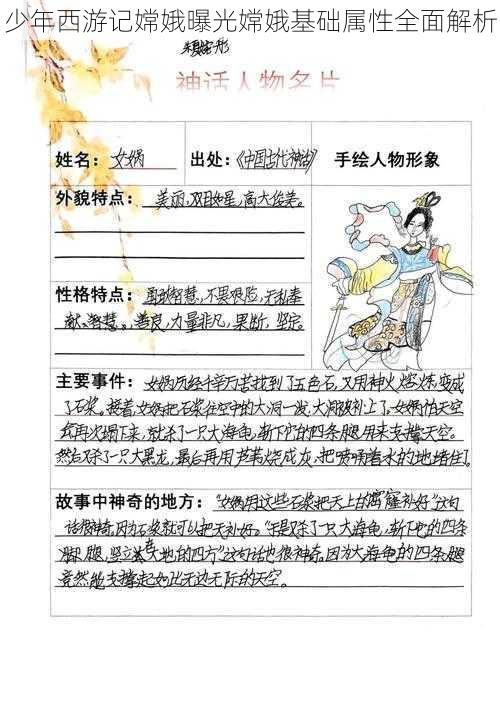 少年西游记嫦娥曝光嫦娥基础属性全面解析
神话人物名片
姓名：女娲
出处：《中国古代神话》
手绘人物形象
外貌特点：美丽,双目如星,高大俊美。
性格特点：勇敢智慧,不畏艰险,无私奉
献、智慧。善良,力量非凡,果断,坚定。
主要事件：女娲历经千辛万苦找到了五色石,又用神火燃炼变成
了石浆。接着女娲把石浆往空中的大洞一泼,大洞被补上了,女娲怕天空
会再次塌下来,就杀了一只大海龟,斩下它的四条腿用来支撑天空。
然后又杀了一只大黑龙,最后再用芦苇烧成灰,把喷涌着水的地堵住了
故事中神奇的地方："女娲用这些石浆把天上的窟窿补好"这句
话很神奇,因为石浆就可以把天补好。"于是又杀了一只大海龟,斩下它的四条
腿,竖立在大地的四方"这句话也很神奇。因为大海龟的四条腿
竟然能支撑起如此无边无际的天空。